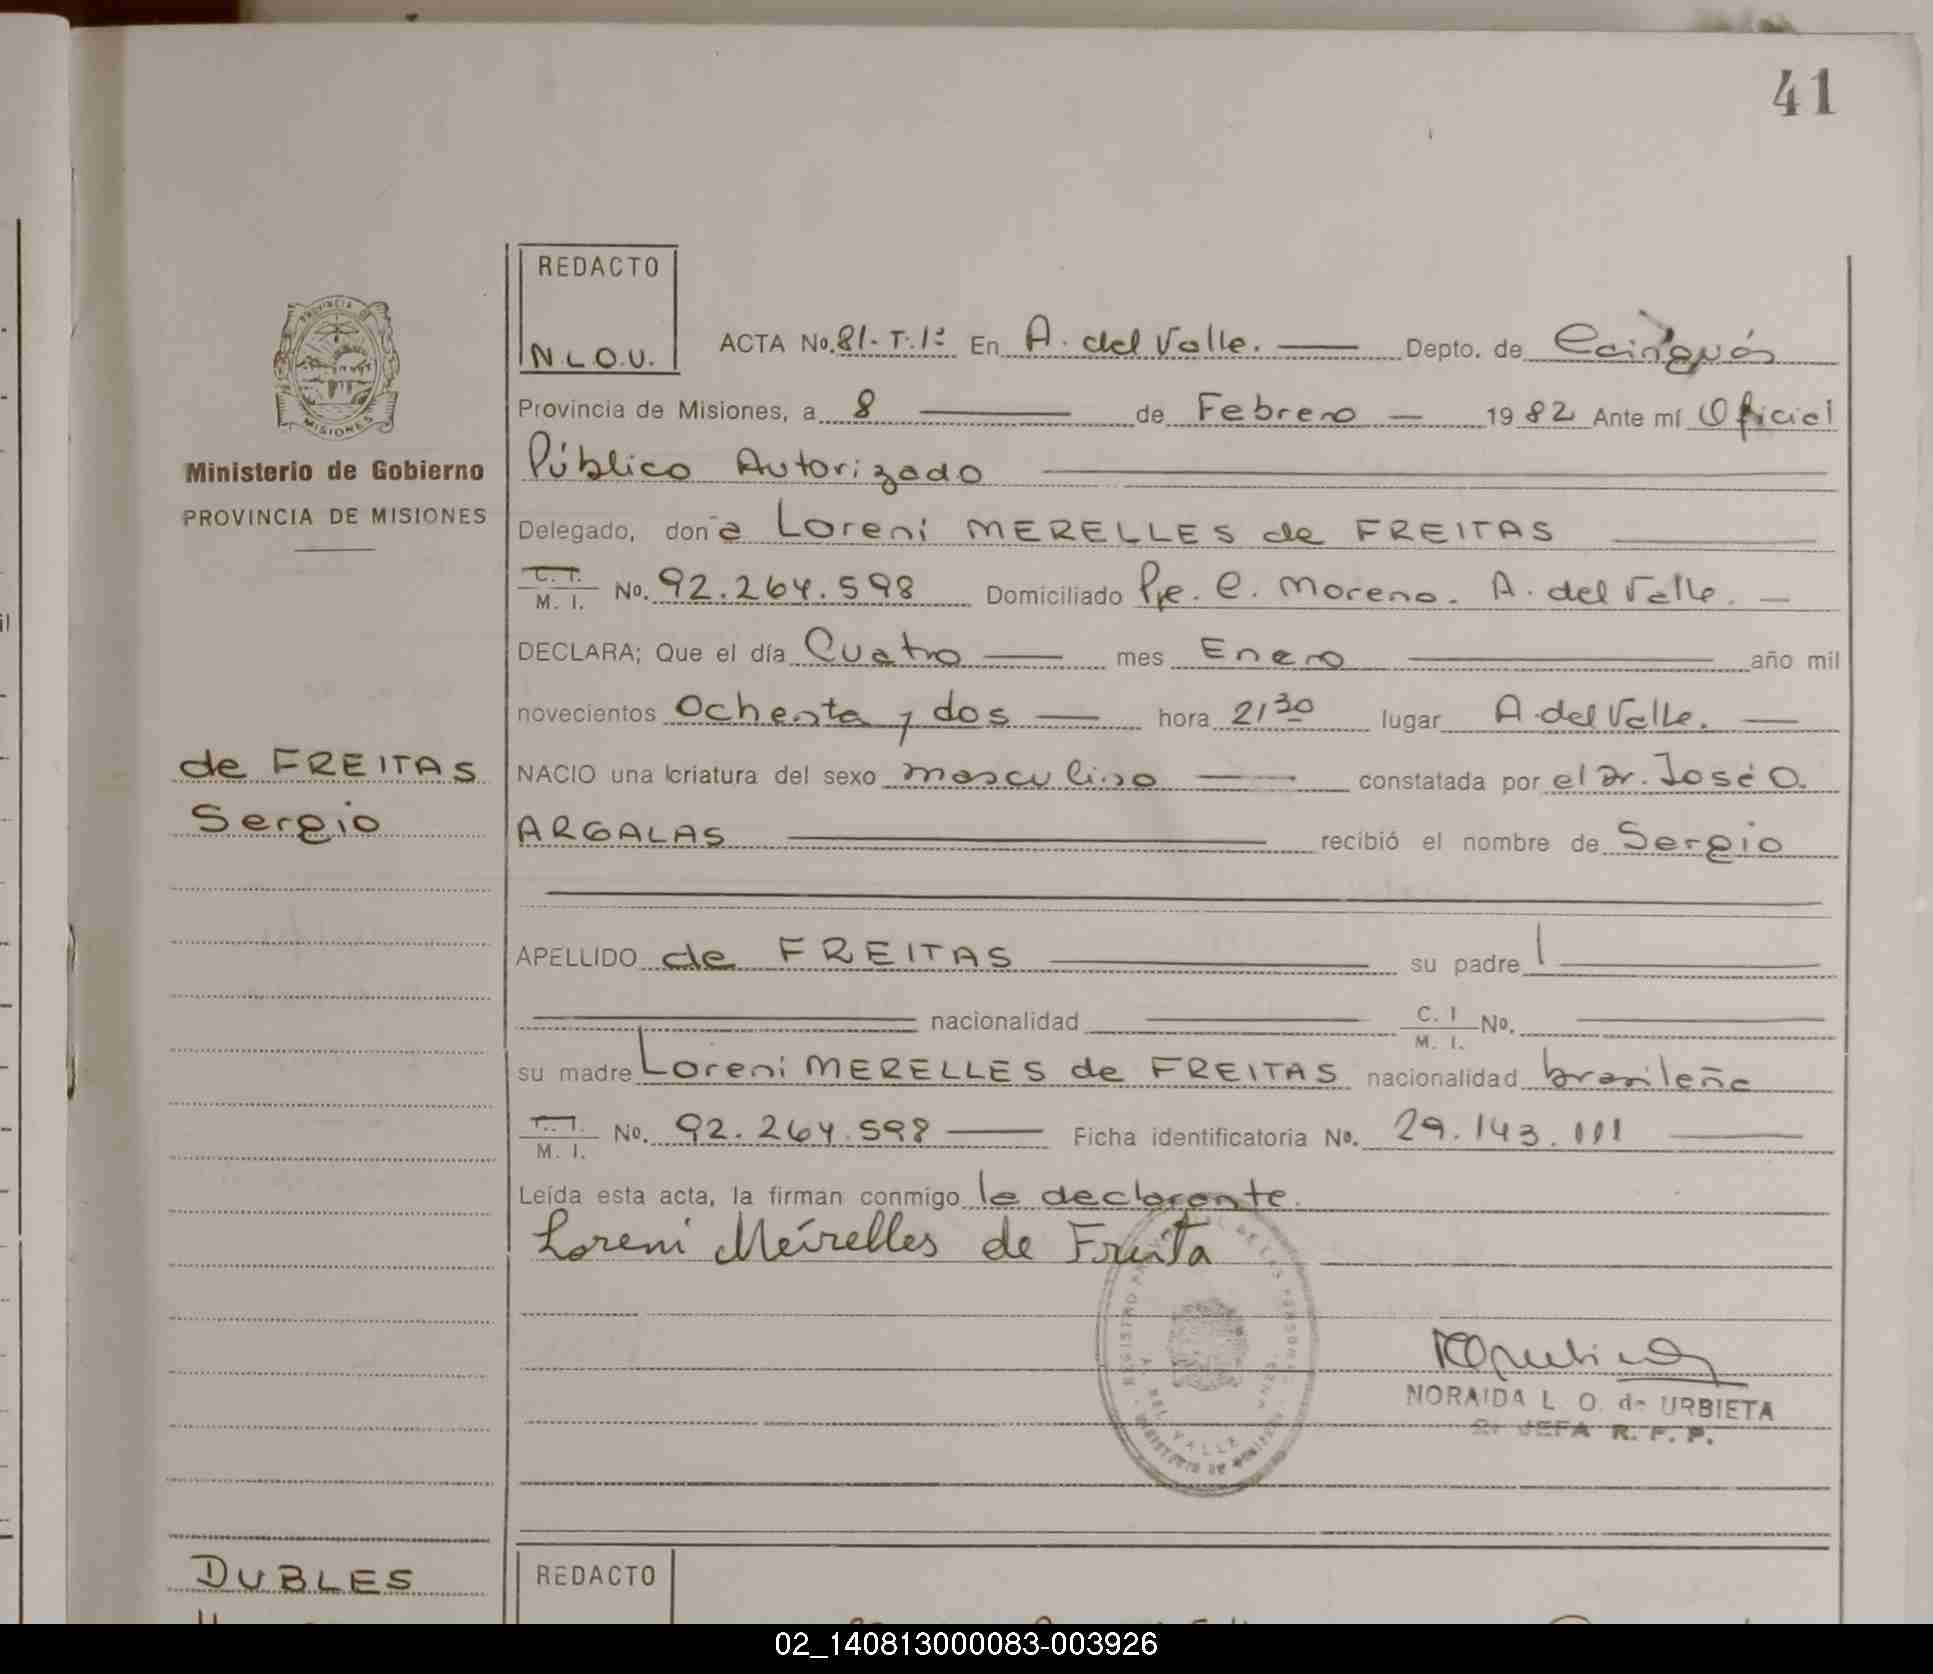 41
REDACTO
N.L.O.U.
ACTA No. 81-T.1º En A. del Valle. Depto. de Cainguás
Provincia de Misiones, a 8 de Febrero 1982 Ante mí Oficial
Público Autorizado
Delegado, doña Loreni MERELLES de FREITAS
C. I.
M. I. No. 92.264.598 Domiciliado Pje. C. Moreno. A. del Valle.
DECLARA; Que el día Cuatro mes Enero año mil
novecientos Ochenta y dos hora 21,30 lugar A. del Valle.
NACIO una criatura del sexo masculino constatada por el Dr. José O.
ARGALAS recibió el nombre de Sergio
APELLIDO de FREITAS su padre
nacionalidad C. I
M. I. No.
su madre Loreni MERELLES de FREITAS nacionalidad brasileña
M. I. No. 92.264.598 Ficha identificatoria No. 29.143.111
Leída esta acta, la firman conmigo la declarante.
Loreni Meirelles de Freita
NORAIDA L. O. de URBIETA
JEFA R. P. P.
PROVINCIA DE
MISIONES
Ministerio de Gobierno
PROVINCIA DE MISIONES
de FREITAS
Sergio
DUBLES
REDACTO
02_140813000083-003926